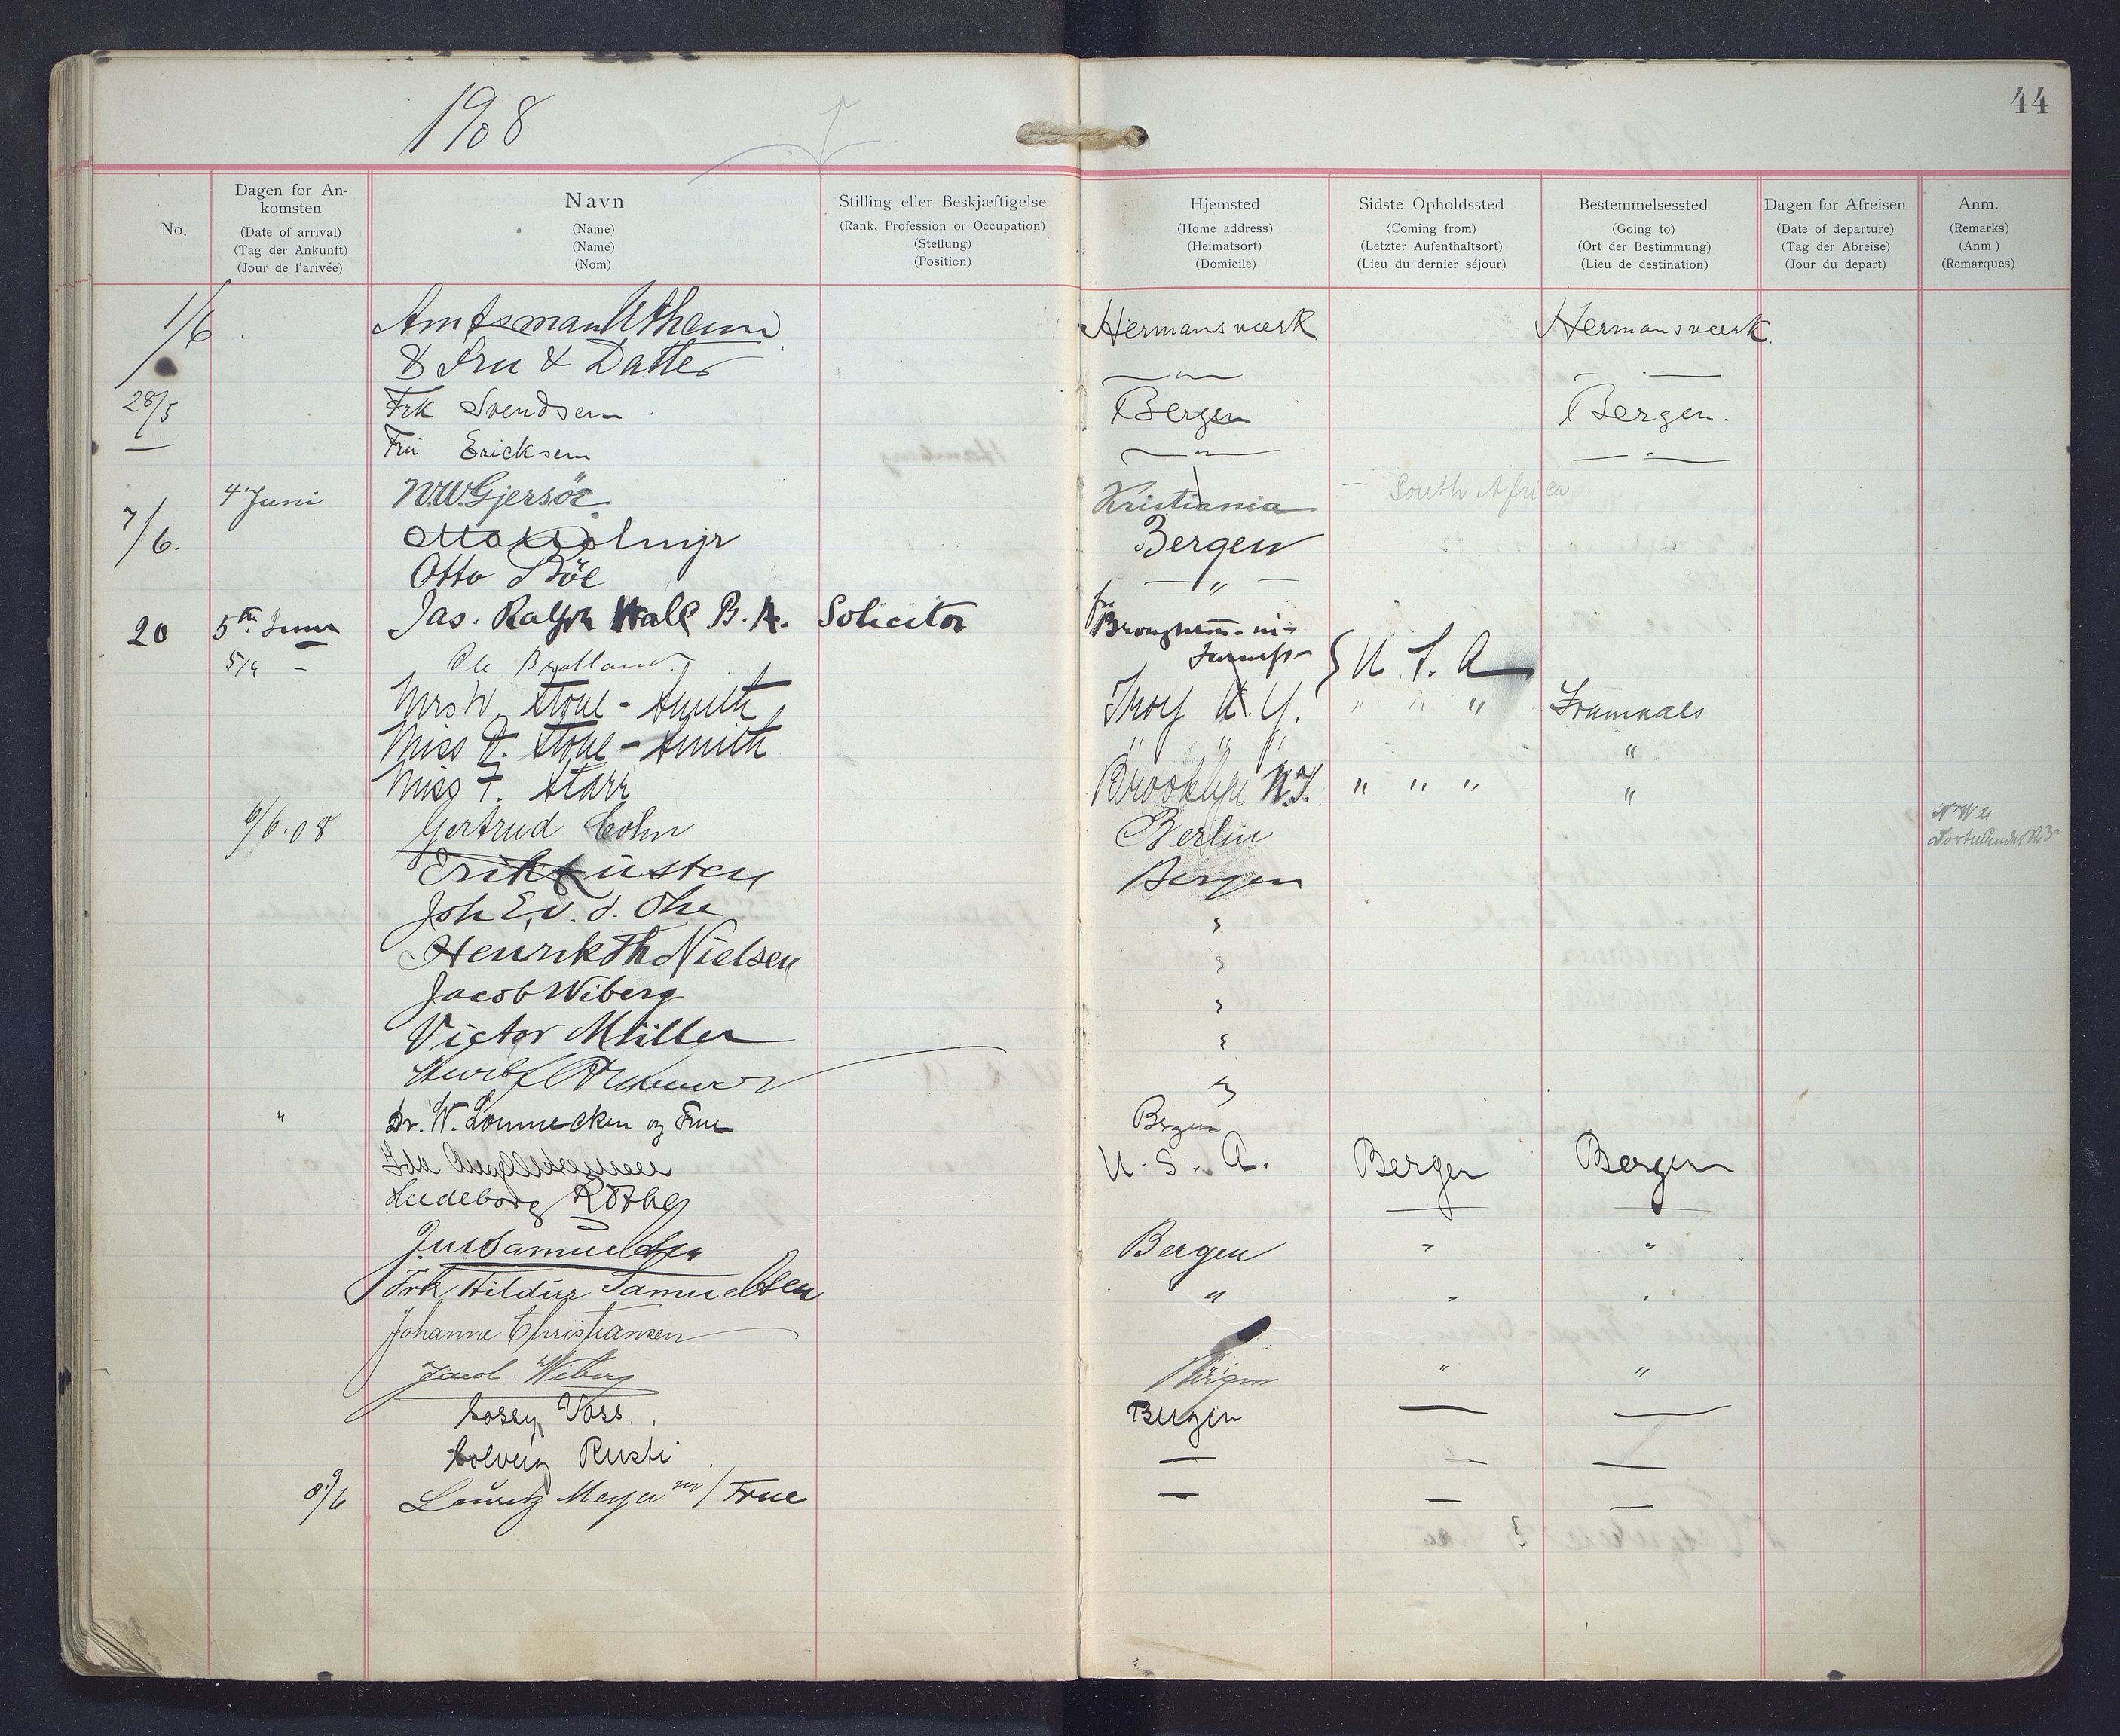 1908
44
No.
Dagen for An-
komsten
(Date of arrival)
(Tag der Ankunft)
(Jour de l'arivée)
Navn
(Name)
(Name)
(Nom)
Stilling eller Beskjæftigelse
(Rank, Profession or Occupation)
(Stellung)
(Position)
Hjemsted
(Home address)
(Heimatsort)
(Domicile)
Sidste Opholdssted
(Coming from)
(Letzter Aufenthaltsort)
(Lieu du dernier séjour)
Bestemmelsessted
(Going to)
(Ort der Bestimmung)
(Lieu de destination)
Dagen for Afreisen
(Date of departure)
(Tag der Abreise)
(Jour du depart)
Anm.
(Remarks)
(Anm.)
(Remarques)
1/6 Amtsman Utheim Hermansværk Hermansværk.
& Fru & Datter — " — — " —
28/5 Frk Svendsen. Bergen Bergen.
— Fru Ericksen — " — — " —
4 Juni N.W. Gjersöe Kristiania — South Africa
7/6. Bergen
Otto Böe — " —
20 5th June Jas. Ralph Hall B.A. Solicitor
5/6 — Ole Bratland U. S. A
Mrs W. Stone-Smith Troy N.Y. " " "
Miss D. Stone-Smith " " " "
Miss F. Starr Brooklyn N.Y. " " " "
6/6.08 Gertrud Cohn Berlin
Bergen
Joh E. v. d. Ohe "
Henrik Th Nielsen "
Jacob Wiberg "
Victor Müller "
"
" Dr. W. Lonnecken og Frue Bergen
Ida U. S. A. Bergen Bergen
Samuelsen Bergen " "
Frk Hildur Samuelsen " " "
Johanne Christiansen
Jacob Wiberg Bergen " "
Voss. Bergen — —
Solveig Rusti. — — —
8/6 Lauritz Meyer m/ Frue — — —